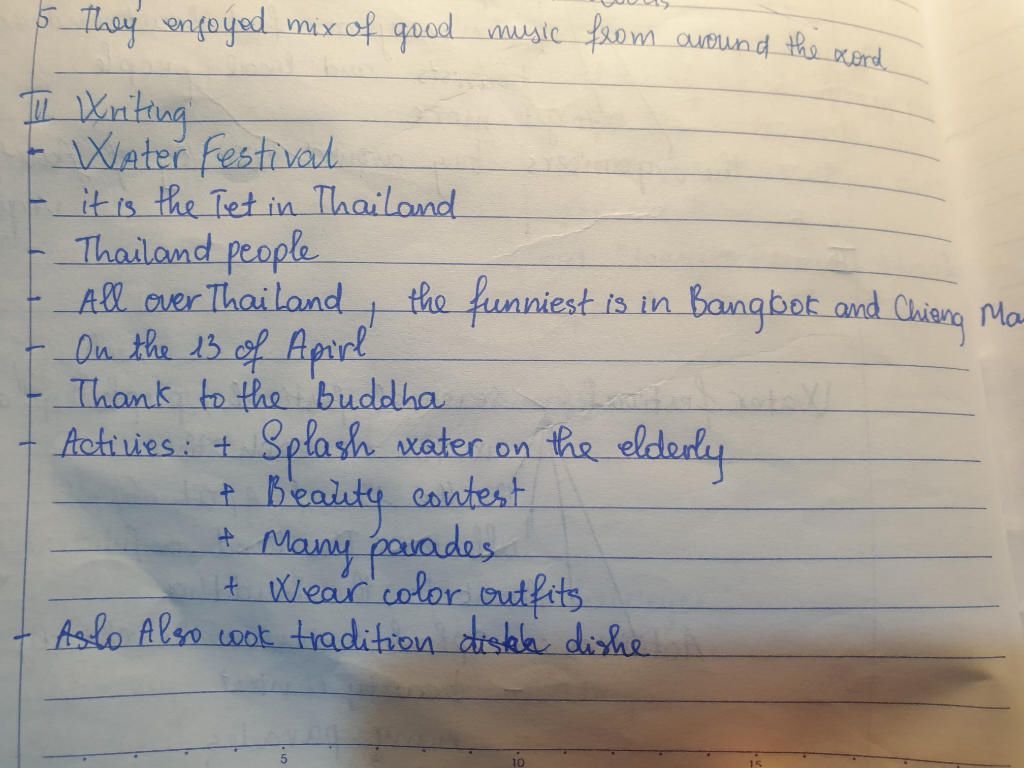 5 They enjoyed mix of good music from around the word
III Writing
- Water Festival
- it is the Tet in Thailand
- Thailand people
- All over Thailand, the funniest is in Bangkok and Chieng Ma
- On the 13 of Apirl
- Thank to the buddha
- Activies: + Splash water on the elderly
+ Beauty contest
+ Many parades
+ Wear color outfits
- Aslo Also cook tradition dishe
5 10 15